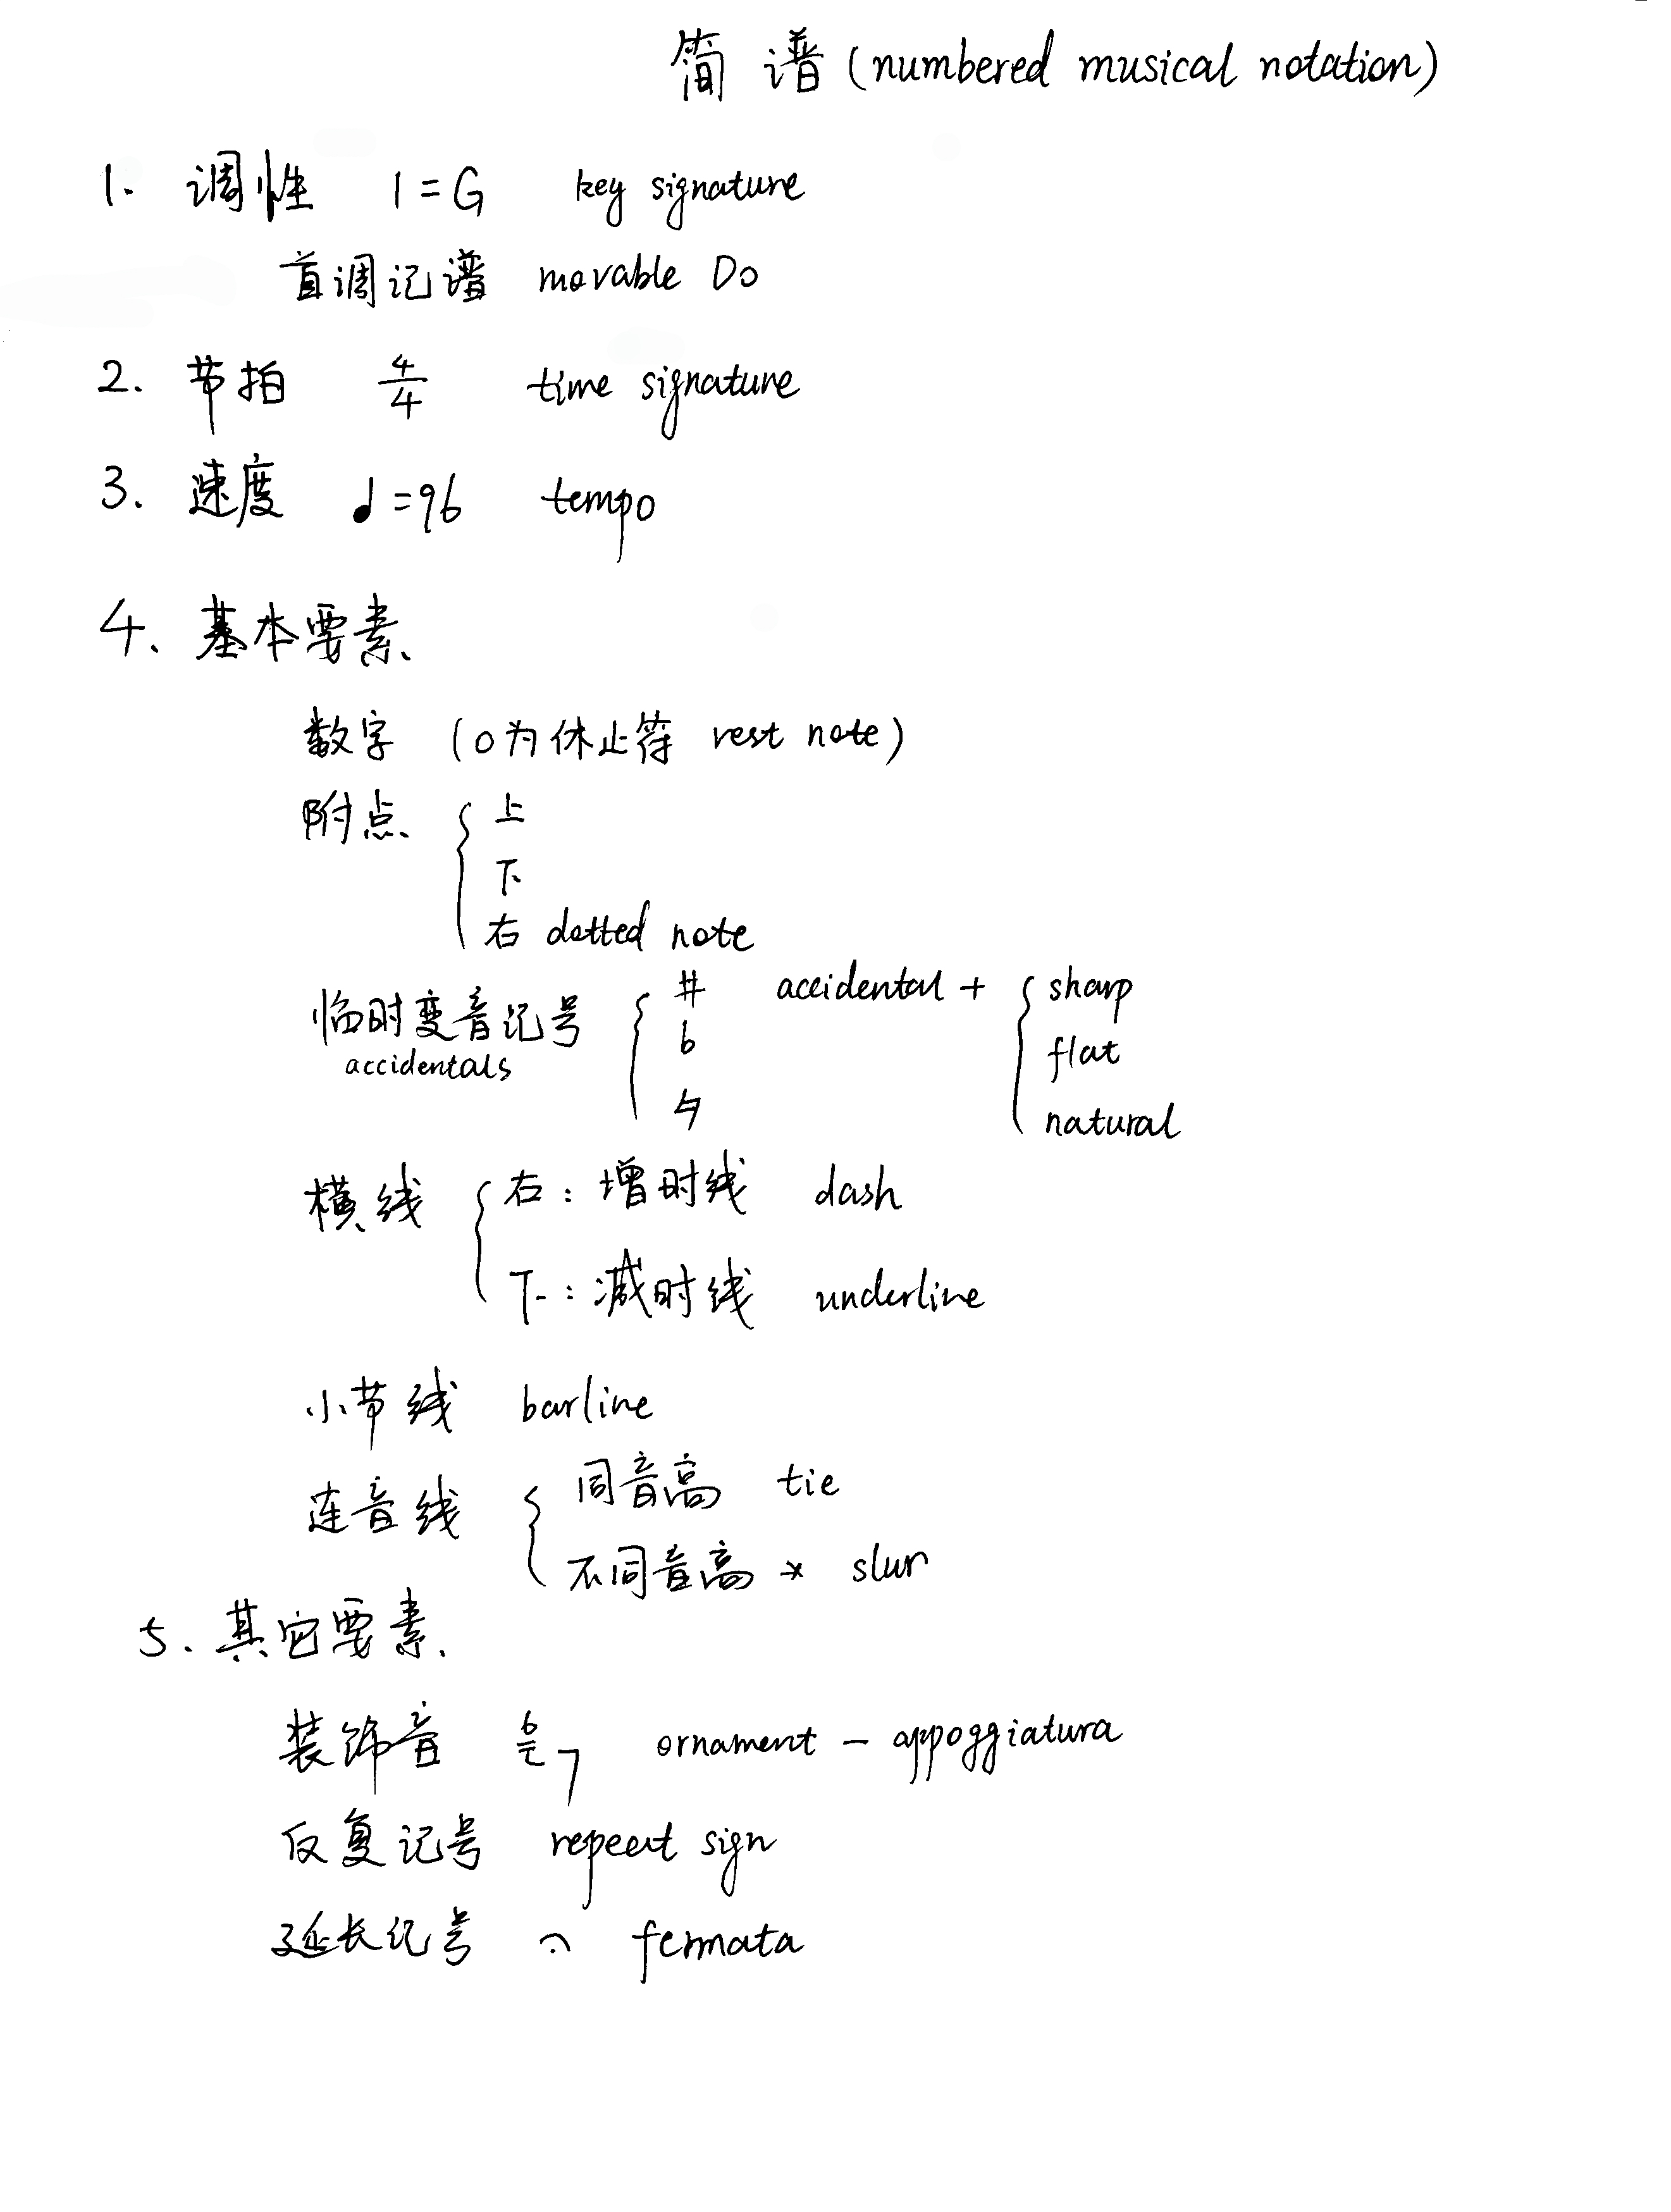 简 谱 (numbered musical notation)
1. 调性 1=G key signature
首调记谱 movable Do
2. 节拍 4/4 time signature
3. 速度 ♩=96 tempo
4、基本要素
数字 (0为休止符 rest note)
附点 { 上
下
右 dotted note
临时变音记号 { # accidental + { sharp
accidentals
b flat
♮ natural
横线 { 右:增时线 dash
下:减时线 underline
小节线 barline
连音线 { 同音高 tie
不同音高 * slur
5、其它要素
装饰音 6 7 ornament - appoggiatura
反复记号 repeat sign
延长记号 𝄐 fermata